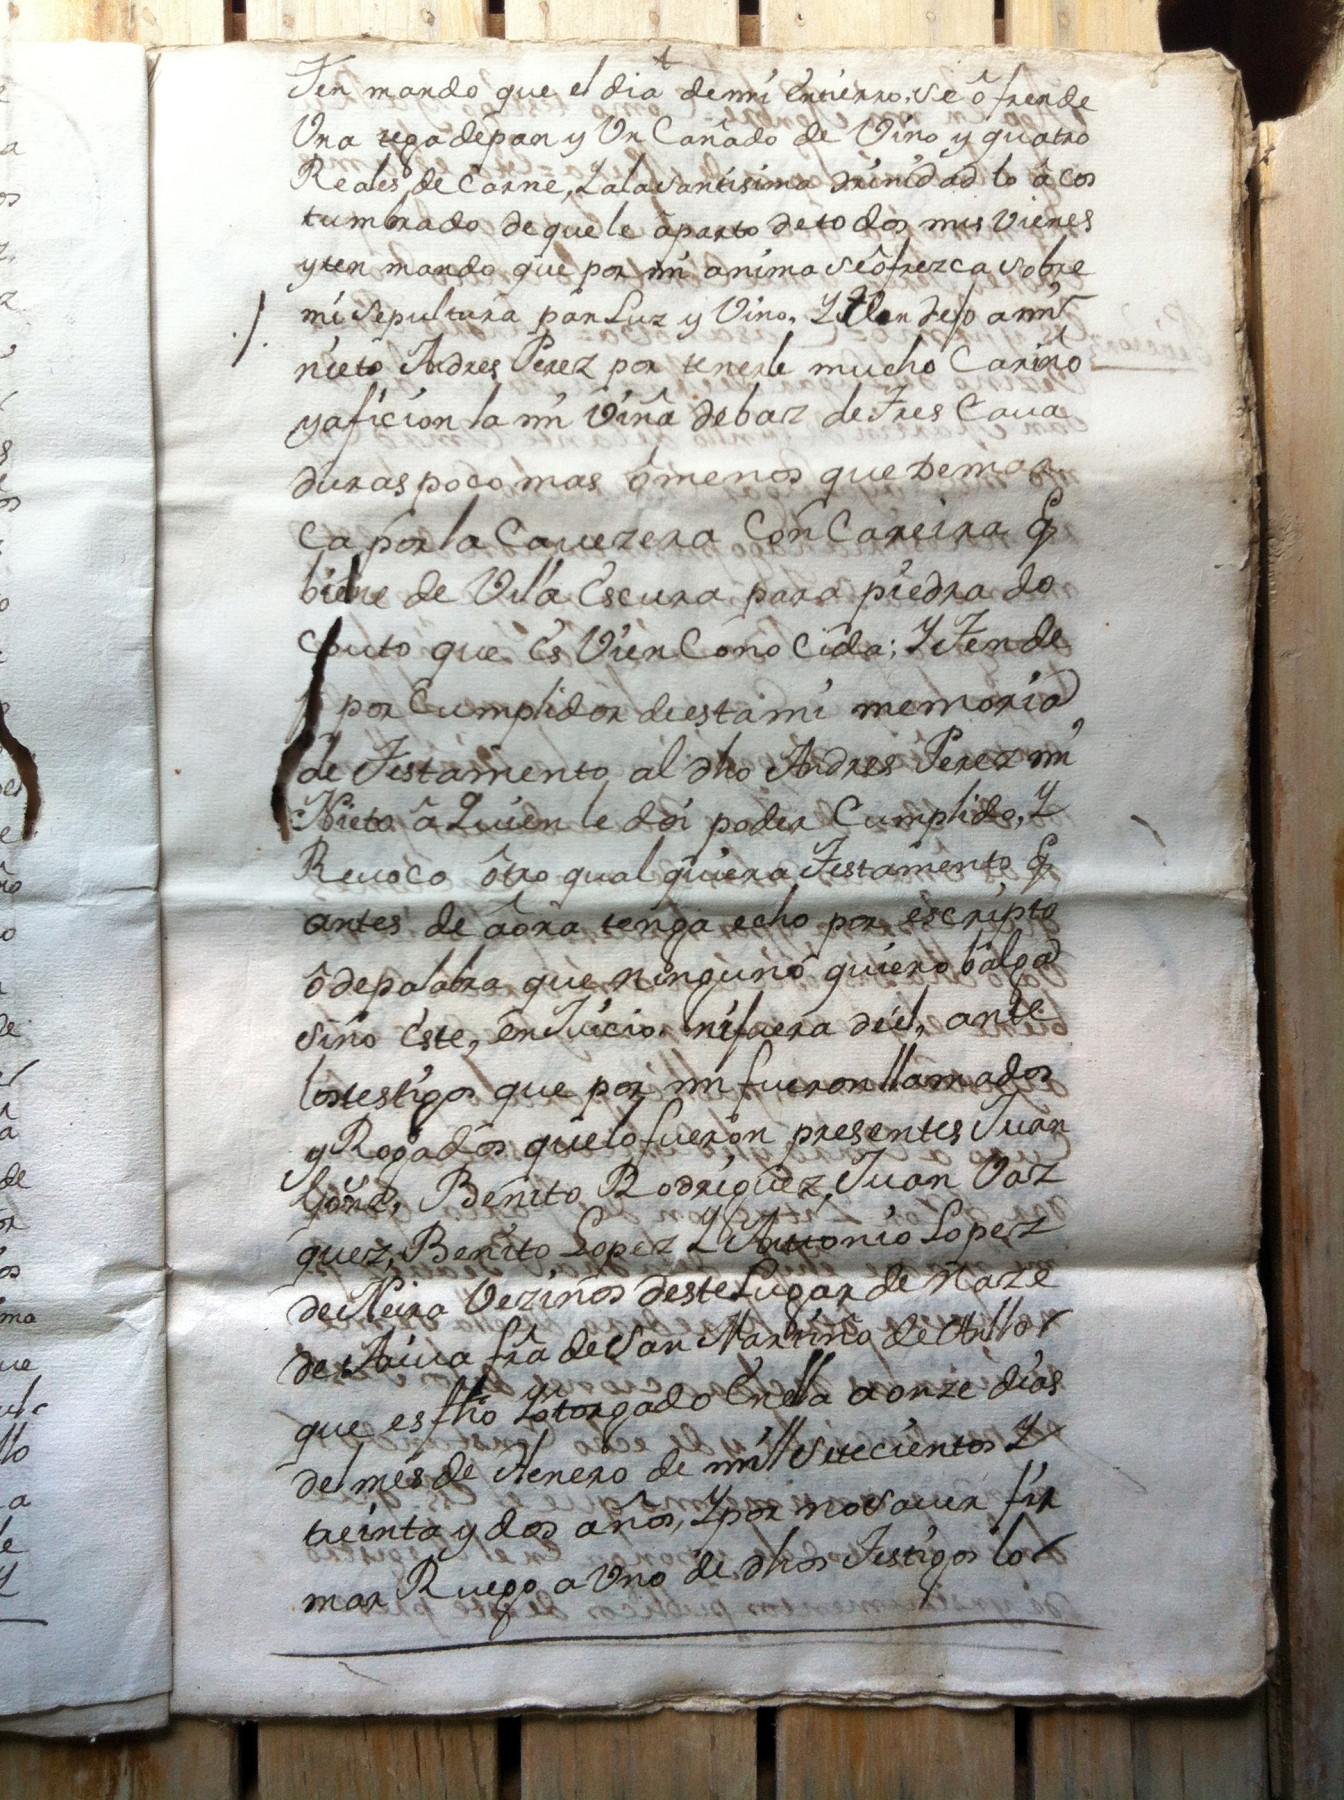 Iten mando que el dia de mi entierro, se ôfrende
Una tega de pan y Un Cañado de Vino y quatro
Reales de Carne, Y a la santisima trinidad lo â cos
tumbrado de que le âparto de todos mis vienes
yten mando que por mi anima se ôfrezca sobre
mi sepultura pan Luz y Vino, Y Iten dejo a mi
nieto Andres Perez por tenerle mucho Cariño
y aficion la mi viña de baz de Tres Caua
duras poco mas ômenos que Demar
ca por la Cauezera Con Careira q
biene de Vila Escura para piedra do
Couto que Es Vien Cono Cida; Y Iten de
por Cumplidor de esta mi memoria
de Testamento al dho Andres Perez mi
Nieto â Quien le doi poder Cumplido, Y
Reuoco ôtro qual quiera Testamento q
antes de aôra tenga echo por escripto
ô de palabra que ninguno quiero balga
sino este, en Juicio ni fuera del, ante
los testigos que por mi fueron llamados
y Rogados que lo fueron presentes Juan
Gonz, Benito Rodriguez, Juan Vaz
quez, Benito Lopez Y Antonio Lopez
de Neira Vezinos deste Lugar de Naze
de Aiua fra de San Martiño de
que es fho Y otorgado En ella a onze dias
del mes de Henero de mill setecientos Y
treinta y dos años, Y por no sauer fir
mar Ruego a Uno de dhos Testigos lo